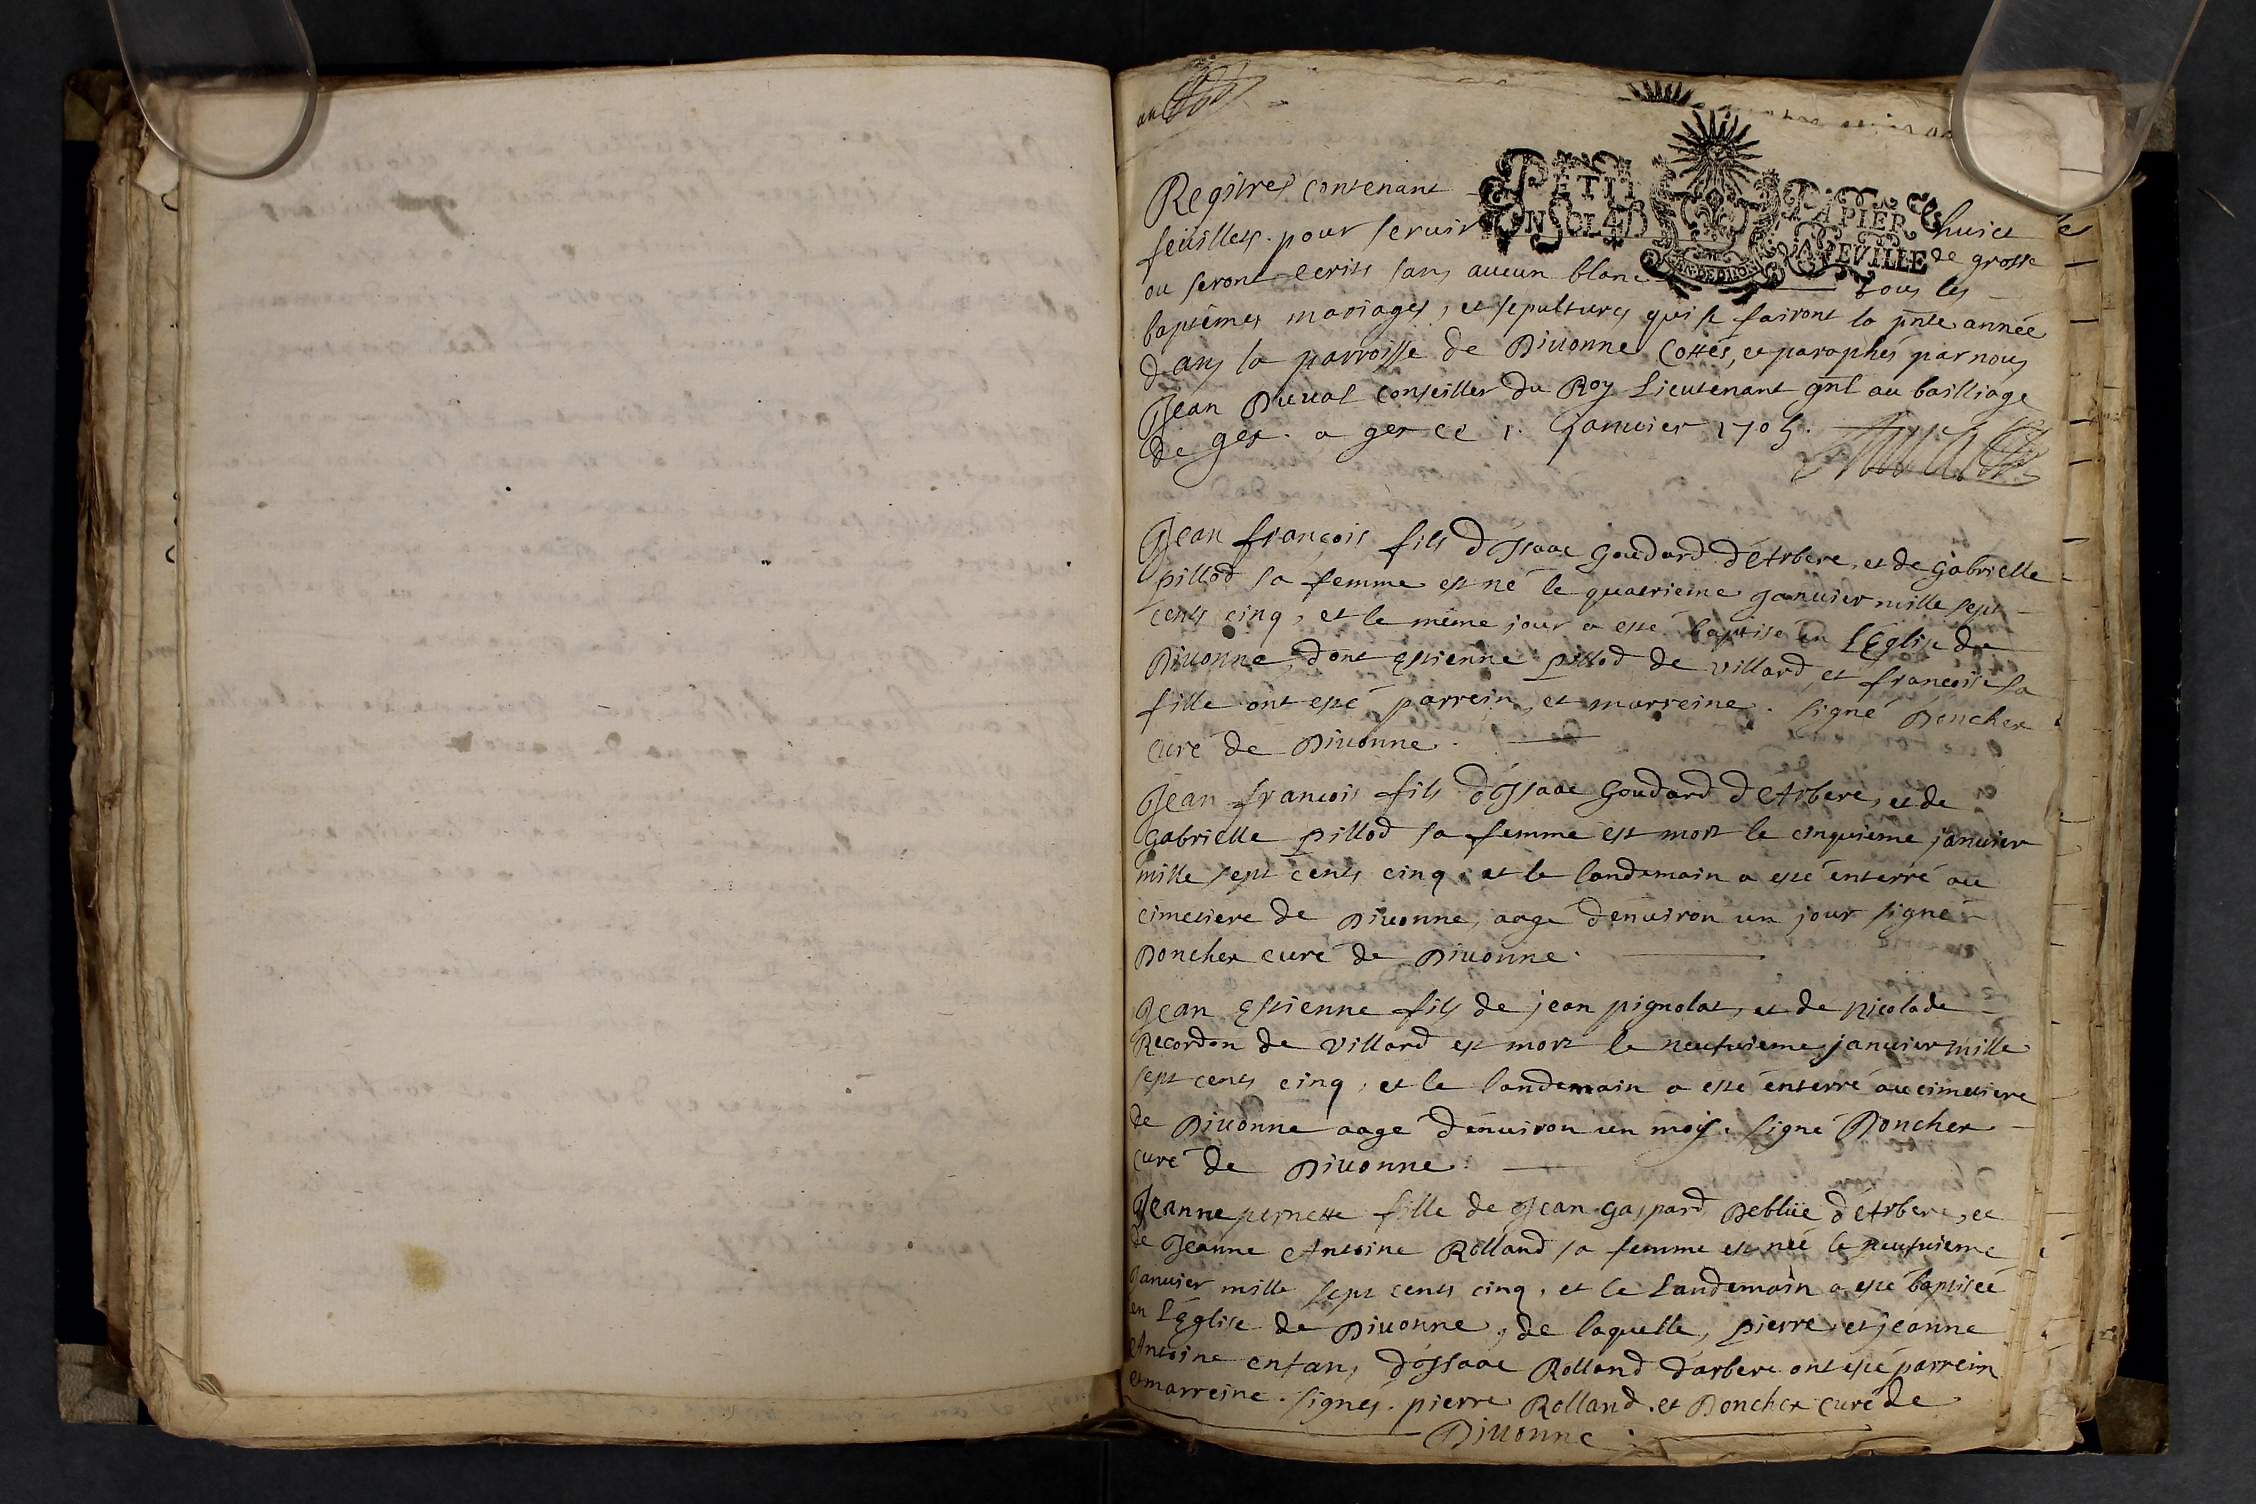 PETIT PAPIER
EN SOL 4D LA FEVILLE
Registres contenant huict
feüillets pour seruir de grosse
ou seront ecrits sans aucun blanc tous les
baptêmes mariages, et sepultures qui se fairont la pnte année
dans la parroisse de Diuonne Cottés, et paraphés par nous
Jean Duual conseiller du Roy Lieutenant gnl au bailliage
de gex. a gex ce 1. Januier 1705.
Jean françois fils d'Jsaac Goudard d'Arbere, et de Gabrielle
pillod sa femme est né le quatrieme januier mille sept
cents cinq, et le même jour a esté baptisé en L'Eglise de
Diuonne, dont Estienne pillod de villard, et françoise sa
fille ont esté parrein, et marreine. signé Doncher
curé de Diuonne.
Jean francois fils d'Jsaac Goudard d'Arbere, et de
Gabrielle pillod sa femme est mort le cinquieme januier
mille sept cents cinq, et le landemain a esté enterré au
cimetiere de Diuonne, aagé d'enuiron un jour signé
Doncher curé de Diuonne.
Jean Estienne fils de jean pignolat, et de nicolade
Recordon de villard est mort le neufuieme januier mille
sept cents cinq, et le landemain a esté enterré au cimetiere
de Diuonne aagé d'enuiron un mois. signé Doncher
curé de Diuonne.
Jeanne pernette fille de Jean Gaspard Deblüe d'Arbere, et
de Jeanne Antoine Rolland sa femme est née le neufuieme
Januier mille sept cents cinq, et le Landemain a esté baptisée
en L'Eglise de Diuonne, de laquelle, pierre, et jeanne
Antoine enfans d'Jsaac Rolland d'arbere ont esté parrein
et marreine. signés. pierre Rolland, et Doncher curé de
Diuonne.